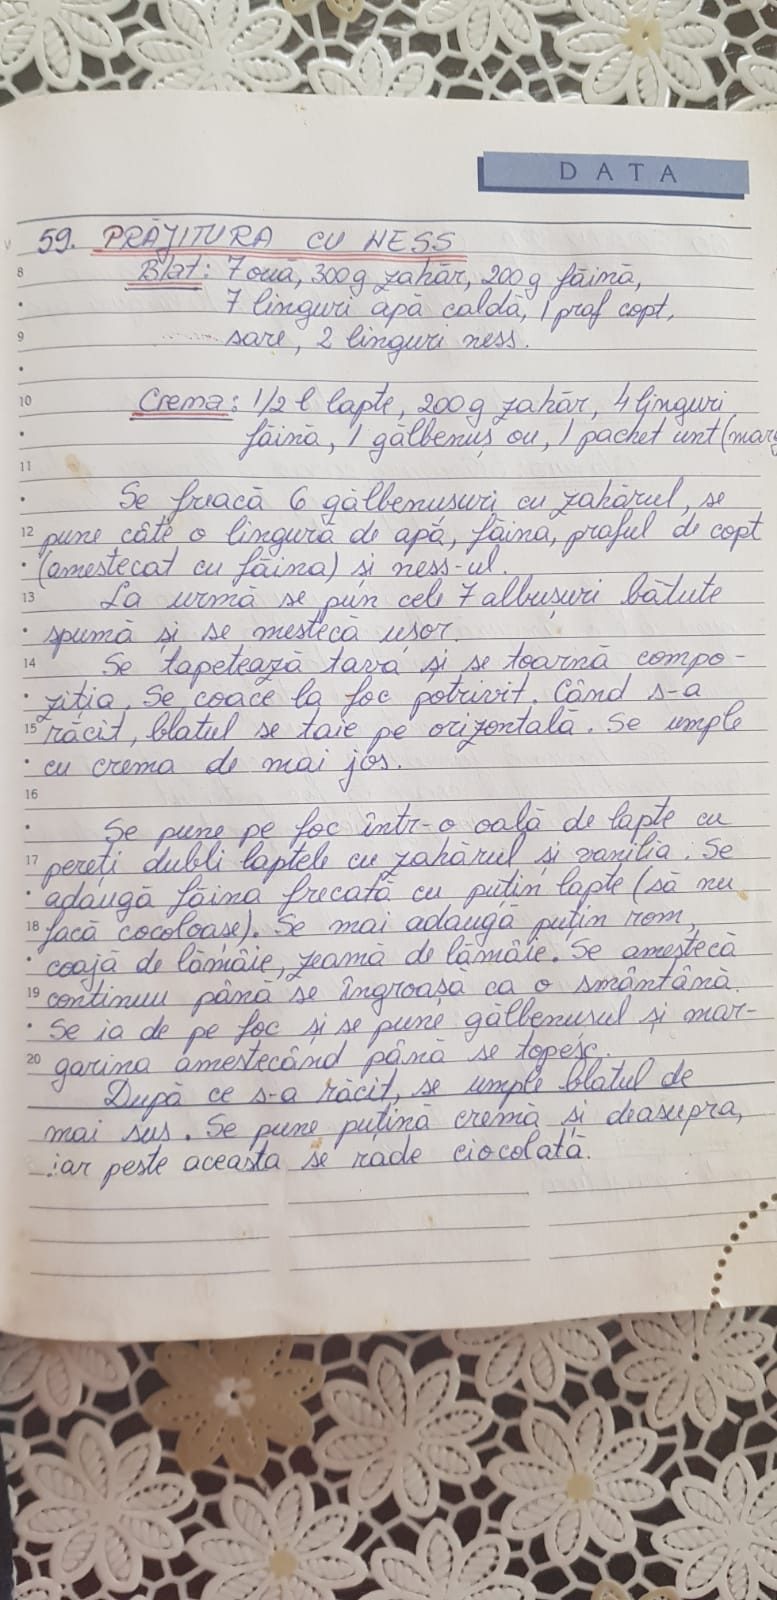 DATA
59. PRĂJITURA CU NESS
8 Blat: 7 ouă, 300g zahăr, 200g făină,
7 linguri apă caldă, 1 praf copt,
9 sare, 2 linguri ness.
10 Crema: 1/2 l lapte, 200g zahăr, 4 linguri
făină, 1 gălbenuș ou, 1 pachet unt (marg
11
Se freacă 6 gălbenusuri cu zahărul, se
12 pune câte o lingură de apă, făina, praful de copt
(amestecat cu făina) și ness-ul.
13 La urmă se pun cele 7 albușuri bătute
spumă și se mestecă ușor.
14 Se tapetează tava și se toarnă compo-
ziția. Se coace la foc potrivit. Când s-a
15 răcit, blatul se taie pe orizontală. Se umple
cu crema de mai jos.
16
Se pune pe foc într-o oală de lapte cu
17 pereți dubli laptele cu zahărul și vanilia. Se
adaugă făina frecată cu puțin lapte (să nu
18 facă cocoloase). Se mai adaugă puțin rom,
coajă de lămâie, zeamă de lămâie. Se amestecă
19 continuu până se îngroașă ca o smântână.
Se ia de pe foc și se pune gălbenusul și mar-
20 garina amestecând până se topesc.
După ce s-a răcit, se umple blatul de
mai sus. Se pune puțină cremă și deasupra,
iar peste aceasta se rade ciocolată.